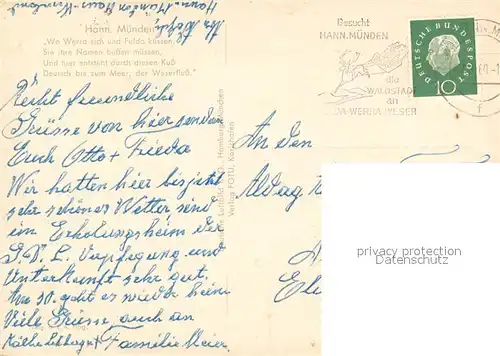 Hann. Münden
„Wo Werra sich und Fulda küssen,
Sie ihre Namen büßen müssen,
Und hier entsteht durch diesen Kuß
Deutsch bis zum Meer, der Weserfluß."
Recht freundliche
Grüsse von hier senden
Euch Otto + Frieda
Wir hatten hier bis jetzt
sehr schönes Wetter sind
im Erholungsheim der
Verpflegung und
Unterkunft sehr gut,
Am 30. geht es wieder heim
Viele Grüsse, auch an
Familie Meier.
Verlag FOTU, Karlshafen
Besucht
HANN.MÜNDEN
die
WALDSTADT
an
FULDA-WERRA-WESER
DEUTSCHE BUNDESPOST
10
f
An den
privacy protection
Datenschutz